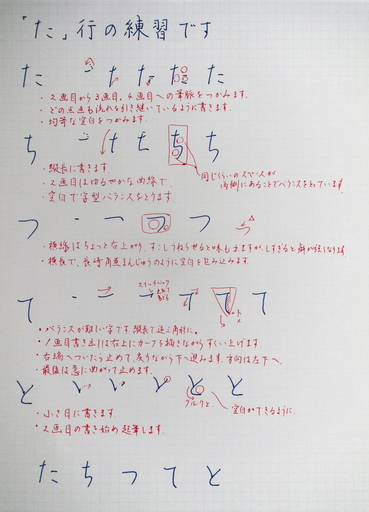 「た」行の練習です
た た た た
・2画目から3画目、4画目への筆脈をつかみます。
・どの点画も流れを引き継いでいるように書きます。
・均等な空白をつかみます。
ち ち ち ち
・縦長に書きます。
・2画目はゆるやかな曲線で
・空白で字型バランスをとります。
同じくらいのスペースが
両側にあることでバランスをとっています。
つ つ つ つ
・横線はちょっと右上がり、すこしうねらせると味も出ますが、しすぎると癖が強くなります
・横長で、長崎角煮まんじゅうのように空白を包み込みます。
て て て て
・バランスが難しい字です。縦長で逆三角形に。
・1画目書き出しは右上にカーブを描きながらすくい上げます
・右端へついたら止めて、戻りながら下へ進みます。方向は左下へ。
・最後は急に曲がって止めます。
と と と と
クルクと
空白ができるように
・小さ目に書きます
・2画目の書き始め起筆します。
た ち つ て と